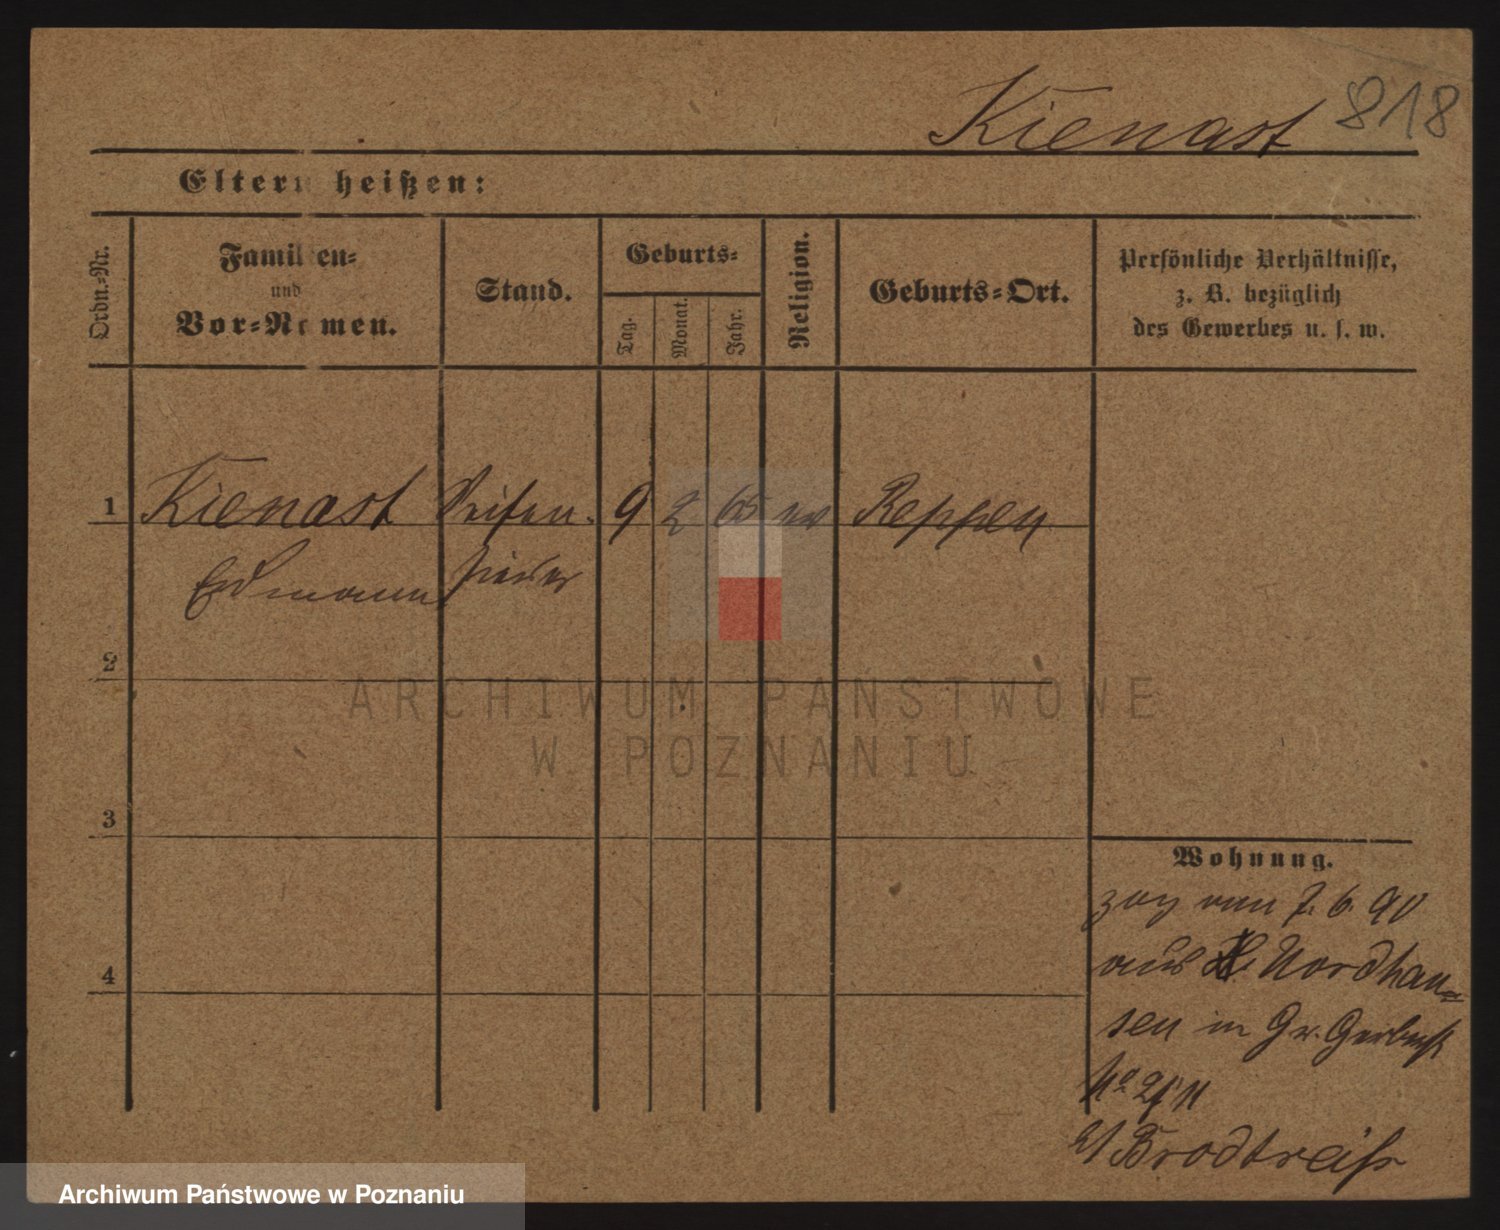 Kienast 818
Eltern heißen:
Ordn.-Nr.
Familien-
und
Vor-Namen.
Stand.
Geburts-
Tag.
Monat.
Jahr.
Religion.
Geburts-Ort.
Persönliche Verhältnisse,
z. B. bezüglich
des Gewerbes u. s. w.
1 Kienast Seifen- 9 2 65 ev Reppen
Erdmann sieder
2
3
4
Wohnung.
zog am 7. 6. 90
aus Nordhau-
sen in Gr. Gerberst
No
b/ Brodtreiß
ARCHIWUM PAŃSTWOWE
W POZNANIU
Archiwum Państwowe w Poznaniu